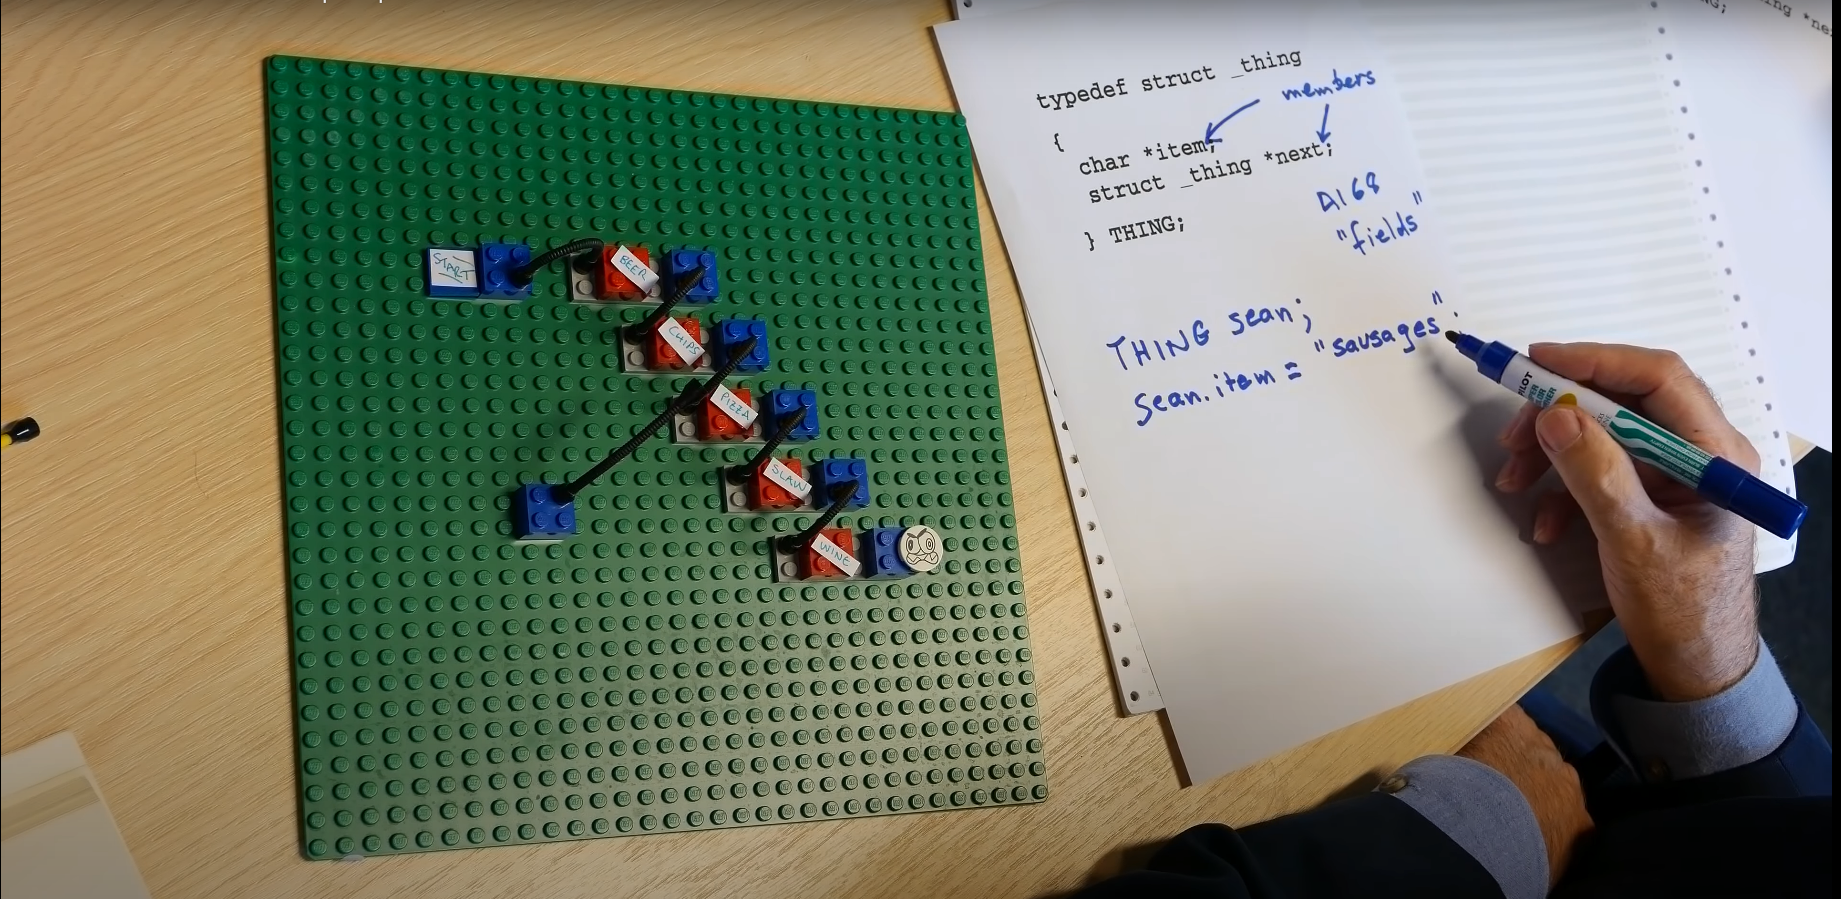 START
BEER
CHIPS
PIZZA
SLAW
WINE
typedef struct _thing
members
{
char *item;
struct _thing *next;
} THING;
A168
"fields"
THING sean;
sean.item = "sausages";
PILOT